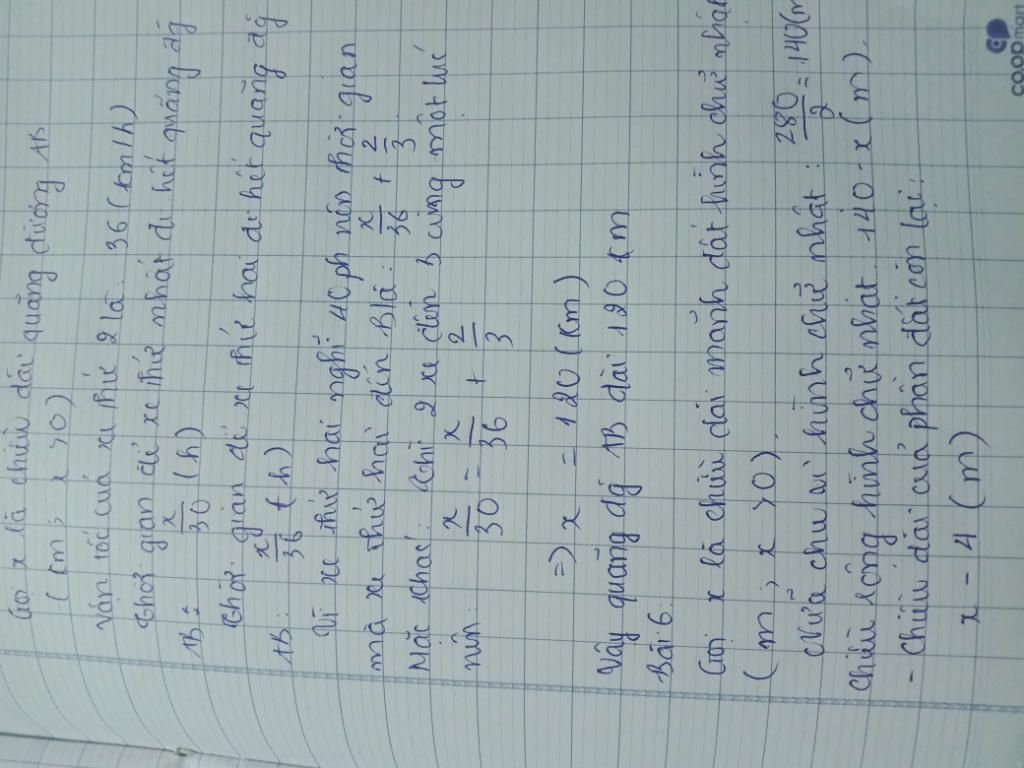 Gọi x là chiều dài quãng đường AB
(km; x > 0)
Vận tốc của xe thứ 2 là: 36 (km/h)
Thời gian để xe thứ nhất đi hết quãng đg
AB: x/30 (h)
Thời gian để xe thứ hai đi hết quãng đg
AB: x/36 (h)
Vì xe thứ hai nghỉ 40 ph nên thời gian
mà xe thứ hai đến B là: x/36 + 2/3
Mặc khác: khi 2 xe đến B cùng một lúc
nên: x/30 = x/36 + 2/3
=> x = 120 (km)
Vậy quãng đg AB dài 120 km
Bài 6:
Gọi x là chiều dài mảnh đất hình chữ nhật
(m; x > 0).
Nửa chu vi hình chữ nhật: 280/2 = 140 (m
Chiều rộng hình chữ nhật: 140 - x (m).
- Chiều dài của phần đất còn lại:
x - 4 (m)
coopmart